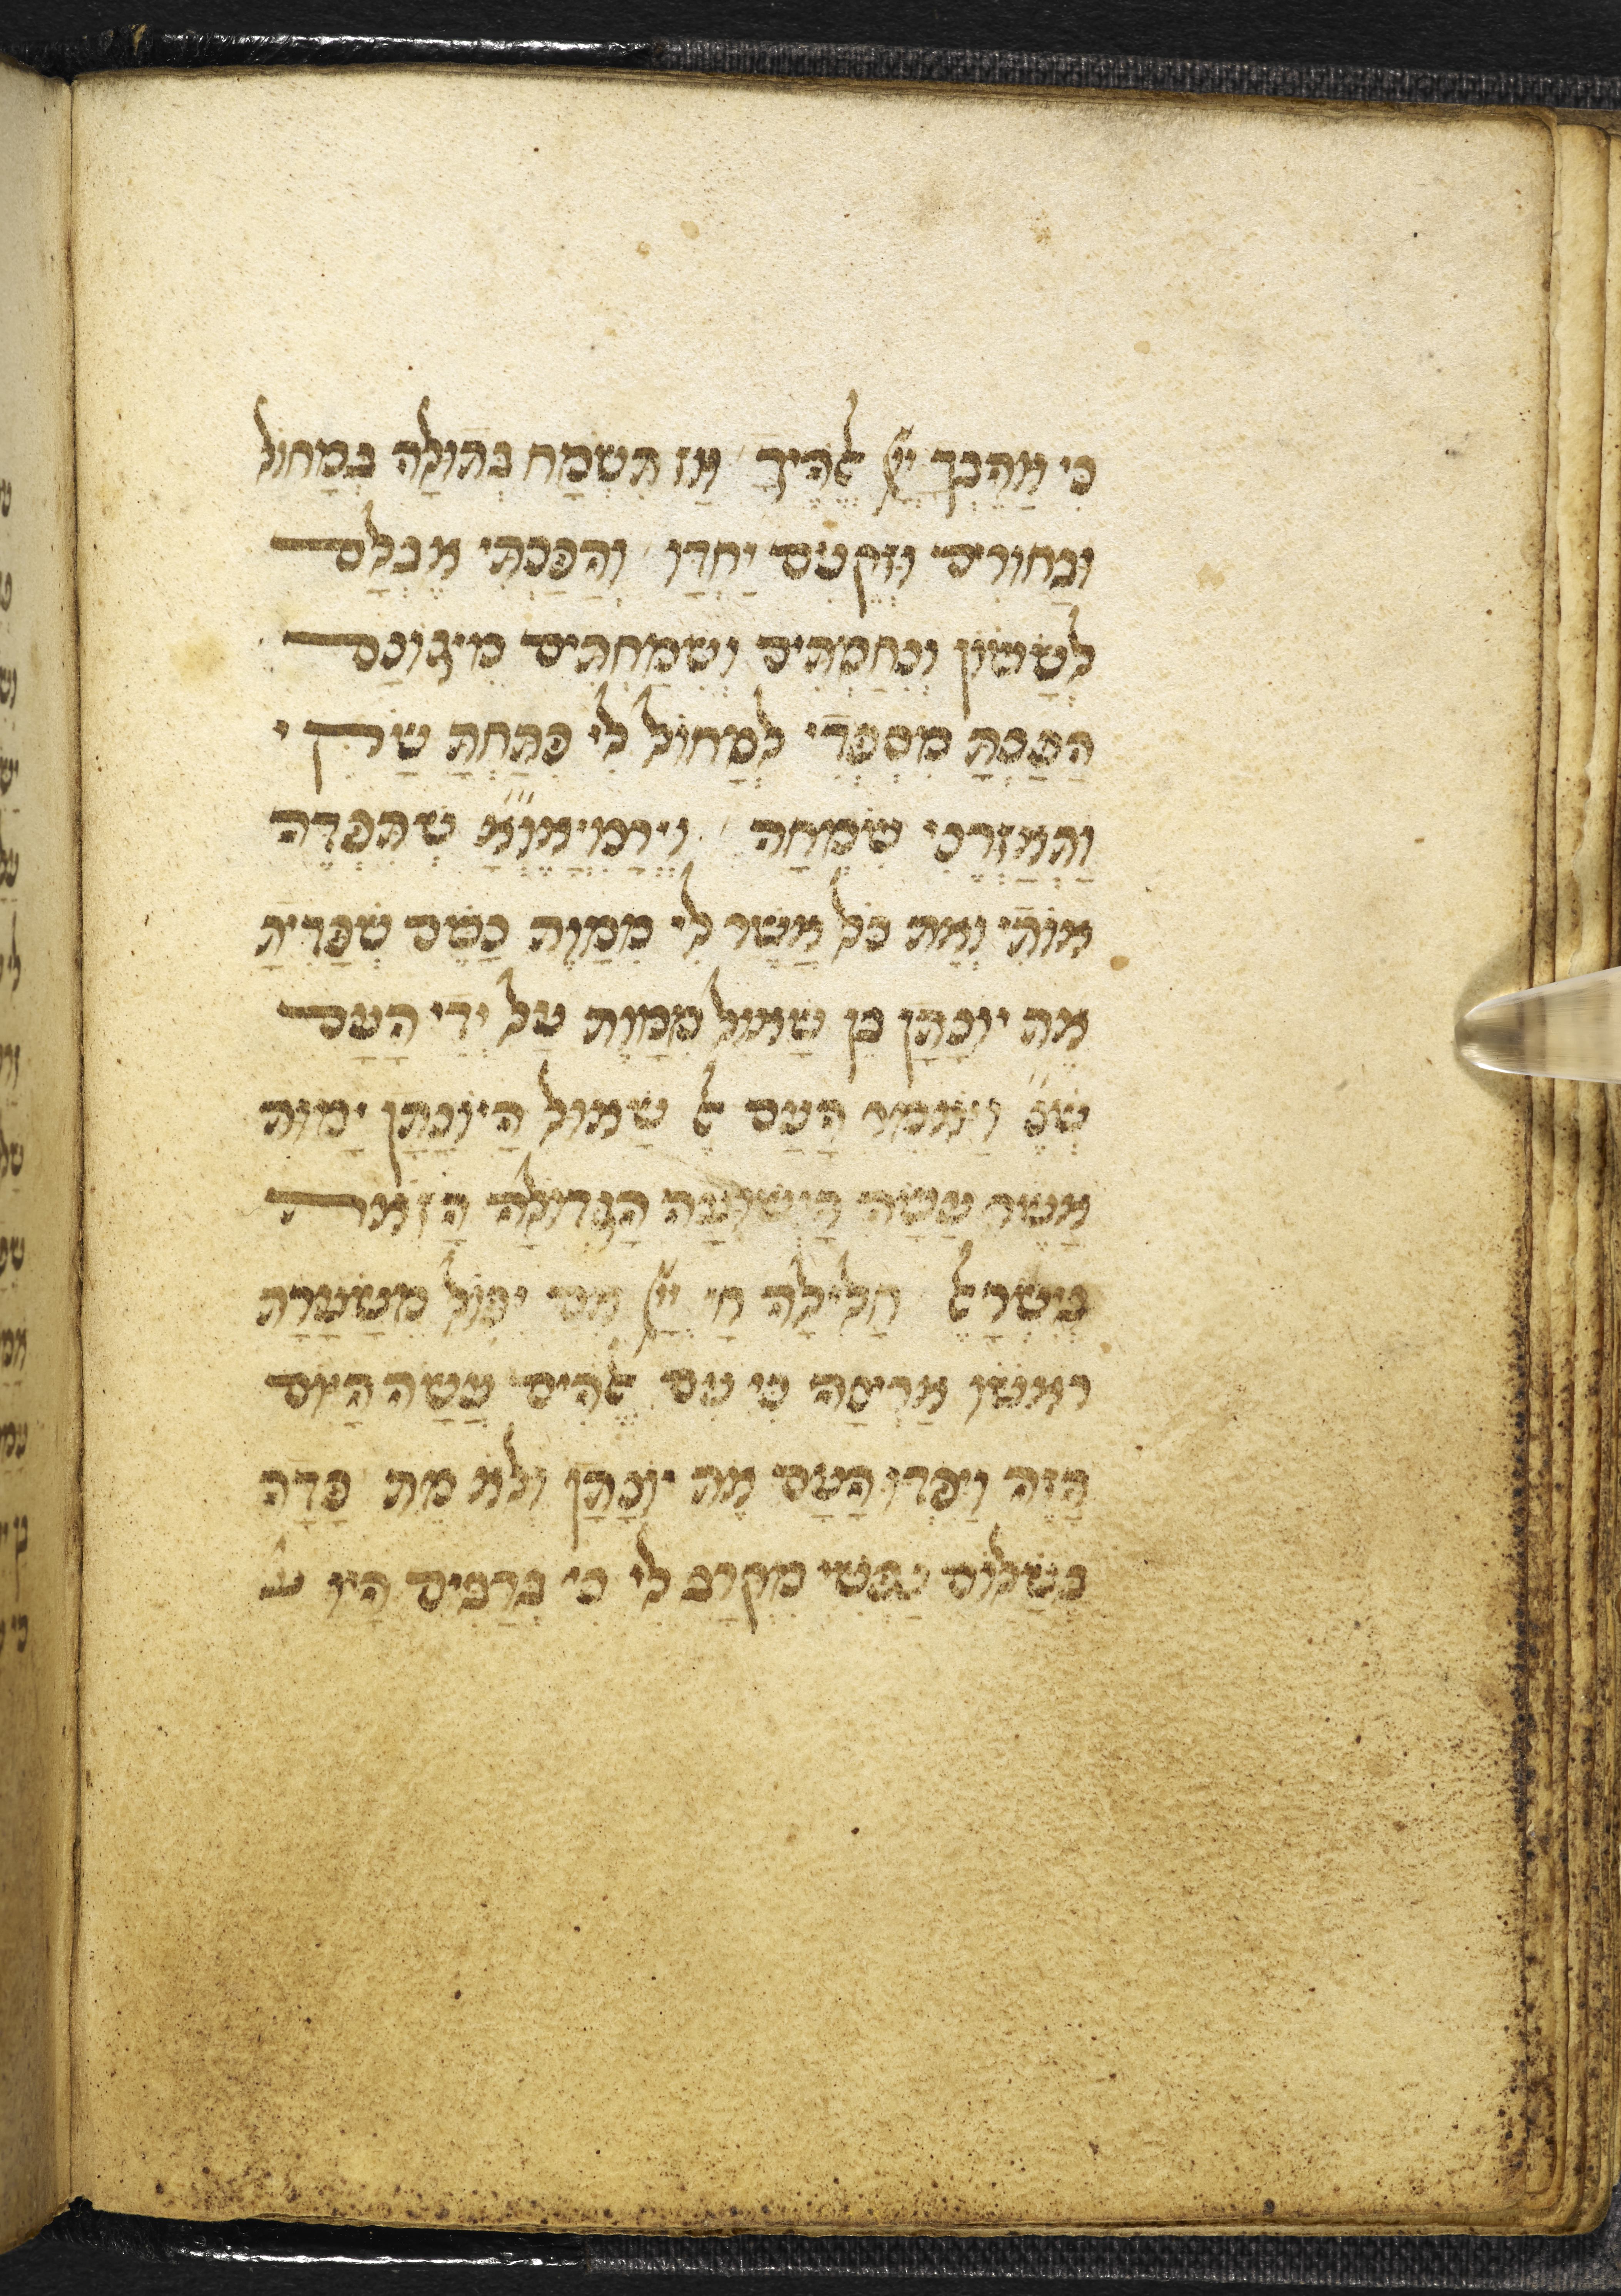 כי אהבך יי אלהיך אז תשמח בתולה במחול
ובחורים וזקנים יחדו והפכתי אבלם
לששון ונחמתים ושמחתים מיגונם
הפכת מספדי למחול לי פתחת שקי
ותאזרני שמחה וירמיאו״א שתפדה
אותי ואת כל אשר לי ממות כשם שפדית
את יונתן בן שאול ממות על ידי העם
שנ׳ ויאמר העם אל שאול היונתן ימות
אשר עשה הישועה הגדולה הזאת
בישראל חלילה חי יי אם יפול משערת
ראשו ארצה כי עם אלהים עשה היום
הזה ויפדו העם את יונתן ולא מת פדה
בשלום נפשי מקרב לי כי ברבים היו